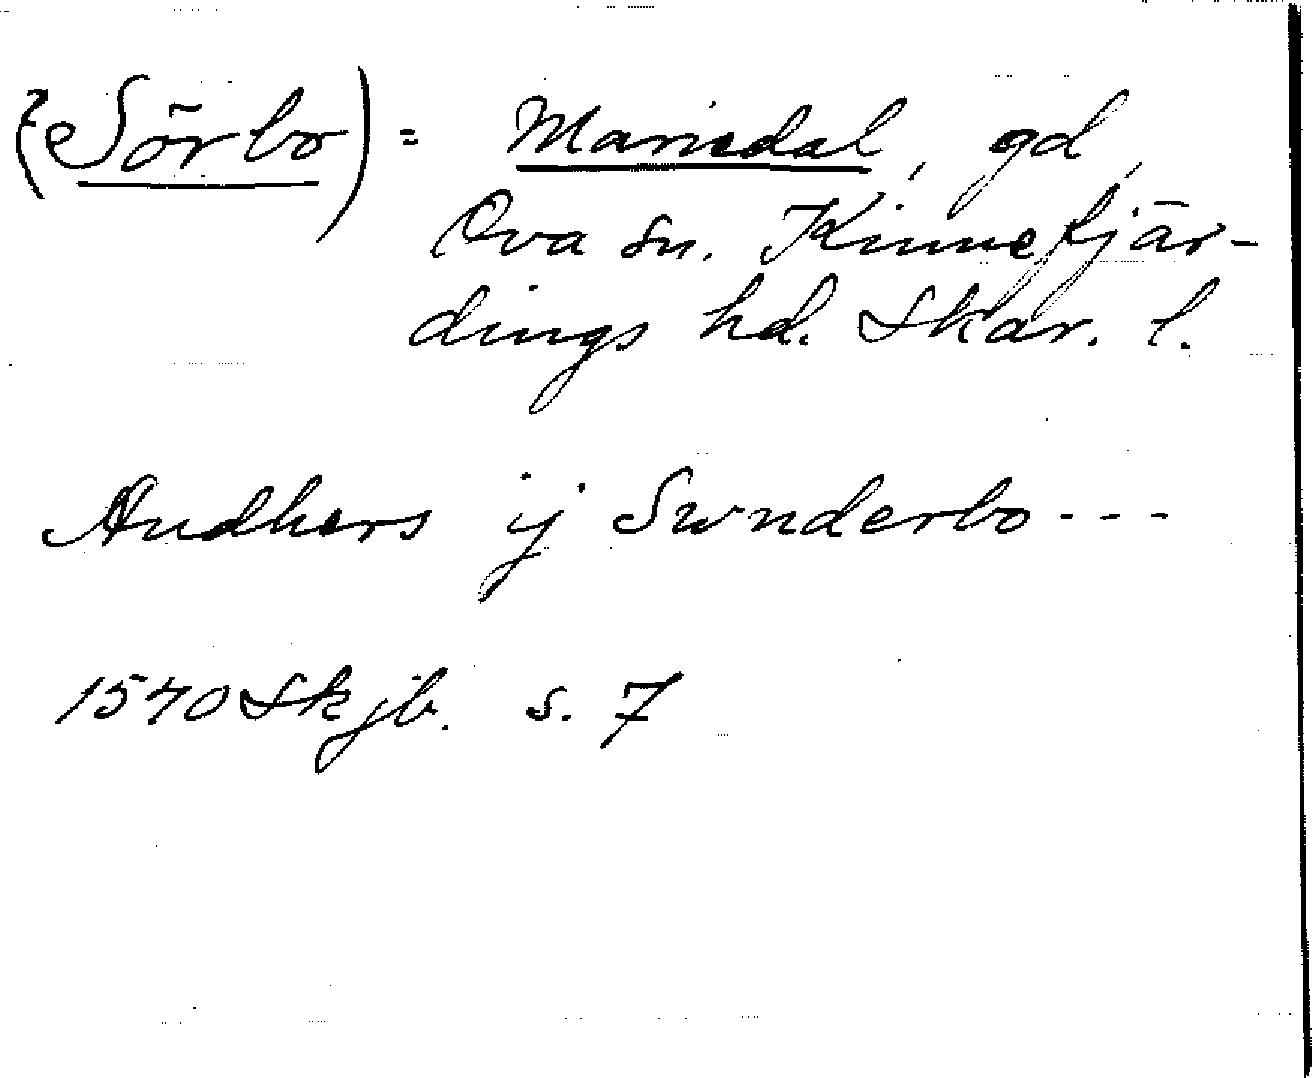 (?Sörbo) = Mariedal, gd,
Ova sn. Kinnefjär-
dings hd. Skar. l.
Andhers ij Swnderbo - - -
1540 Skjb. s. 7